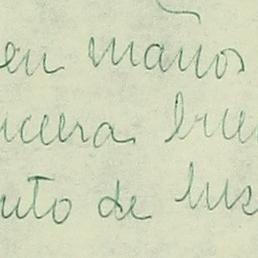 en manos
ncera bue
uto de luz